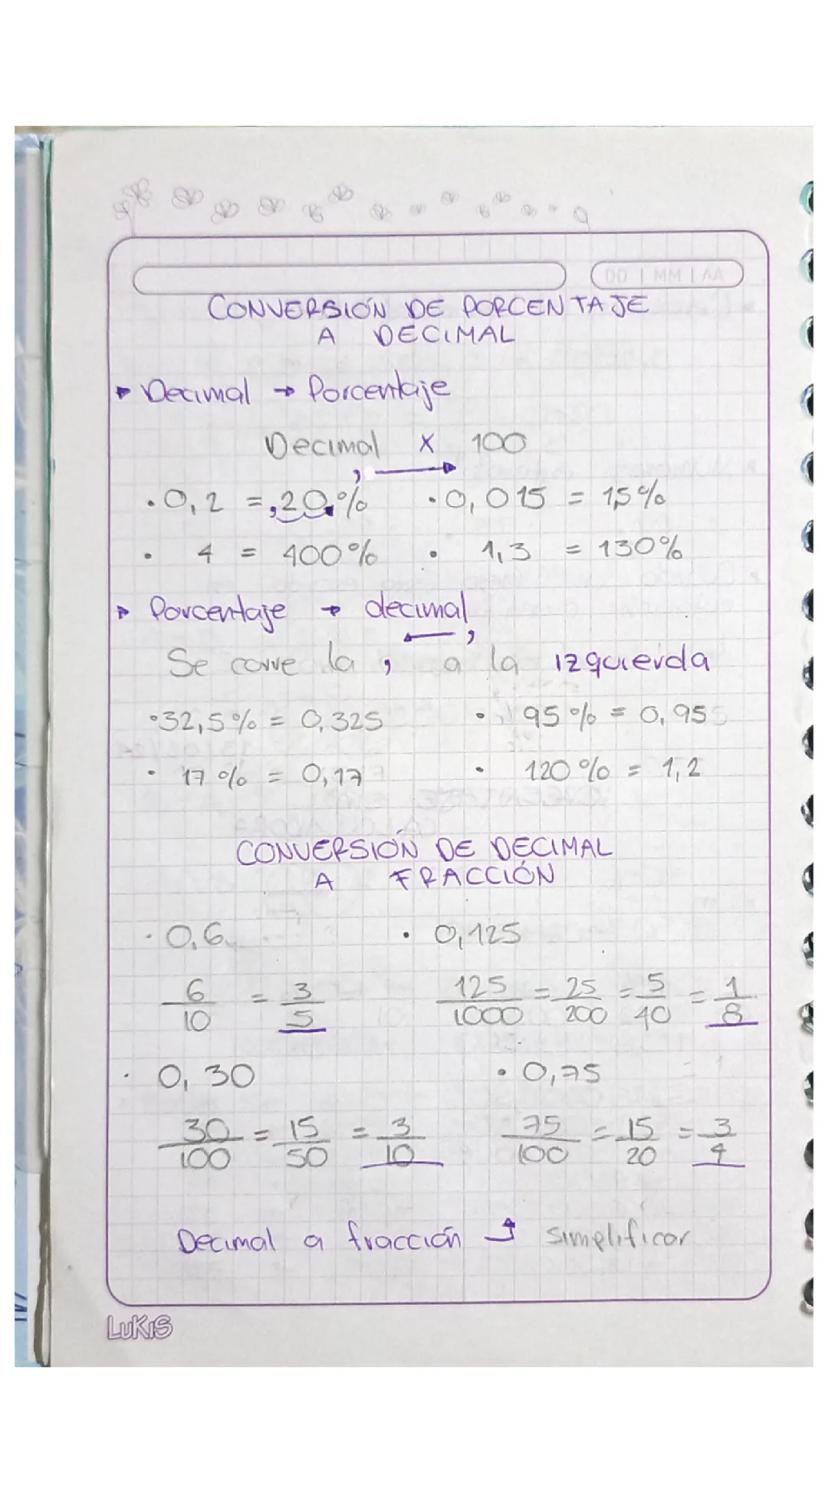 DD | MM | AA
CONVERSIÓN DE PORCENTAJE
A DECIMAL
▸ Decimal → Porcentaje
Decimal x 100
,
· 0,2 = ,20,% · 0,015 = 1,5%
· 4 = 400% · 1,3 = 130%
▸ Porcentaje → decimal
← ,
Se corre la , a la izquierda
· 32,5% = 0,325 · 95% = 0,95
· 17% = 0,17 · 120% = 1,2
CONVERSIÓN DE DECIMAL
A FRACCIÓN
· 0,6 · 0,125
6/10 = 3/5 125/1000 = 25/200 = 5/40 = 1/8
· 0,30 · 0,75
30/100 = 15/50 = 3/10 75/100 = 15/20 = 3/4
Decimal a fracción ↑ simplificar
LUKIS